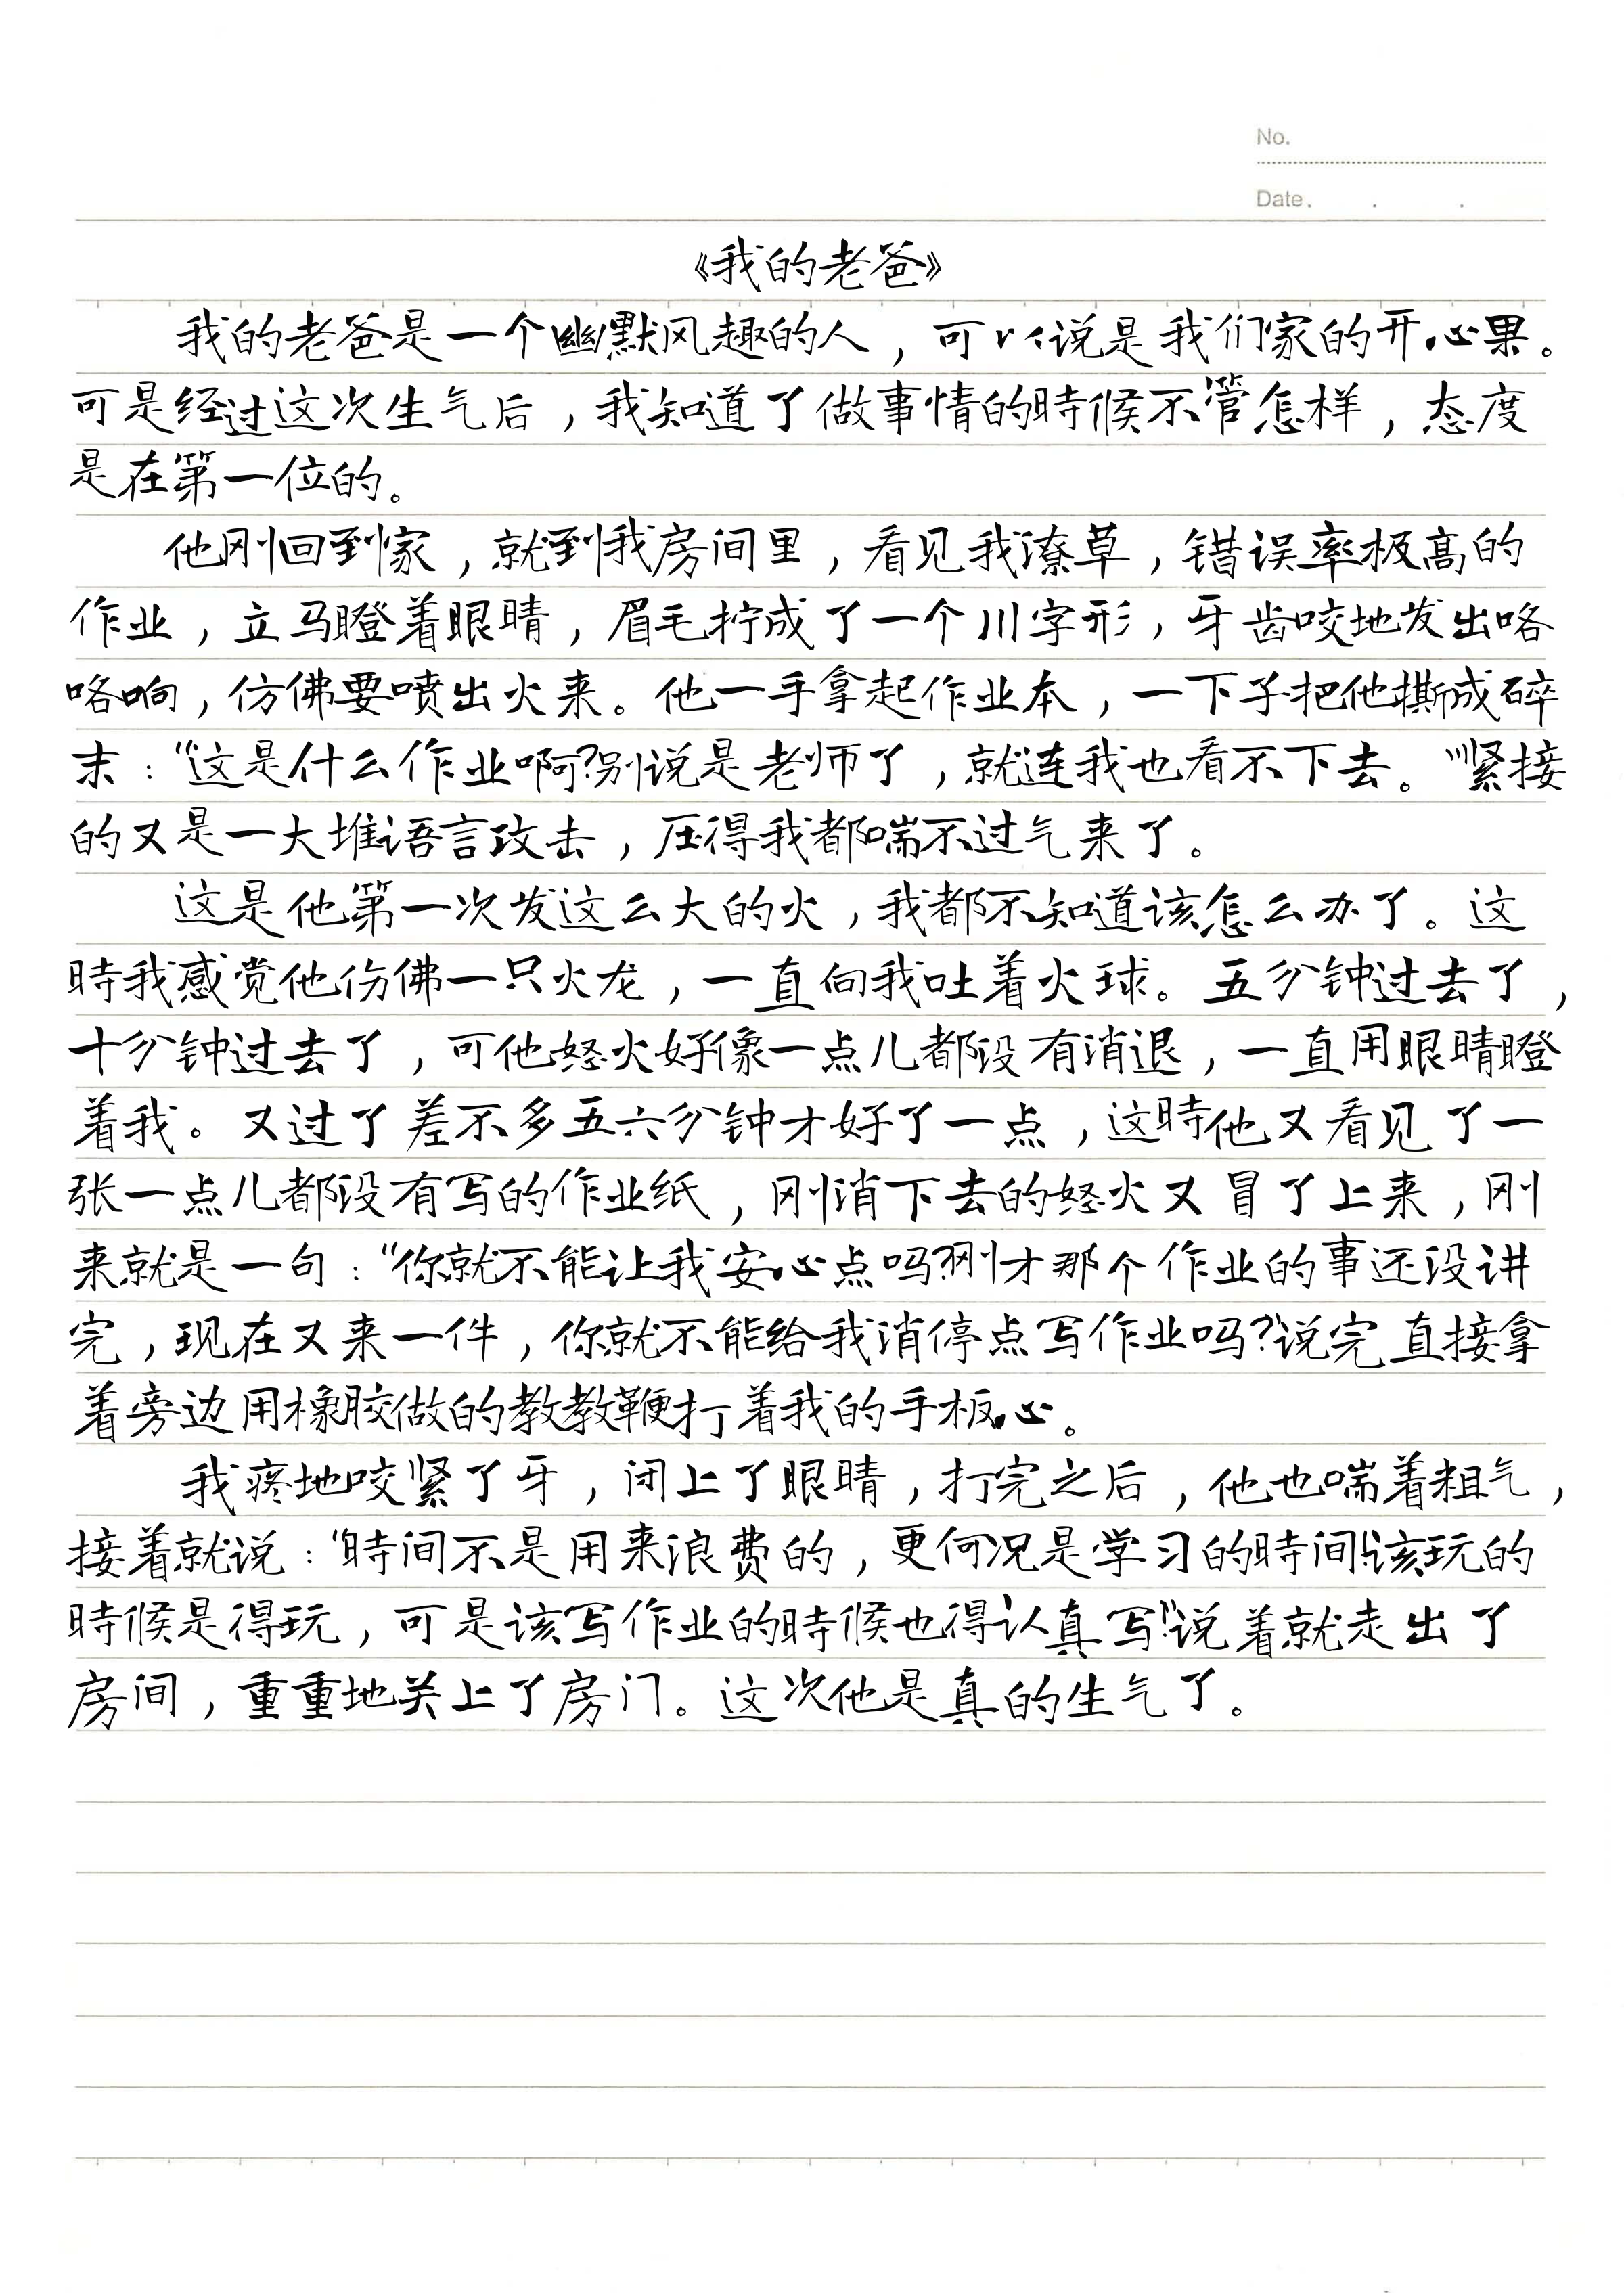 No.
Date.
《我的老爸》
我的老爸是一个幽默风趣的人，可以说是我们家的开心果。
可是经过这次生气后，我知道了做事情的時候不管怎样，态度
是在第一位的。
他刚回到家，就到我房间里，看见我潦草，错误率极高的
作业，立马瞪着眼睛，眉毛拧成了一个川字形，牙齿咬地发出咯
咯响，仿佛要喷出火来。他一手拿起作业本，一下子把他撕成碎
末：“这是什么作业啊？别说是老师了，就连我也看不下去。”紧接
的又是一大堆语言攻击，压得我都喘不过气来了。
这是他第一次发这么大的火，我都不知道该怎么办了。这
時我感觉他仿佛一只火龙，一直向我吐着火球。五分钟过去了，
十分钟过去了，可他怒火好像一点儿都没有消退，一直用眼睛瞪
着我。又过了差不多五六分钟才好了一点，这時他又看见了一
张一点儿都没有写的作业纸，刚消下去的怒火又冒了上来，刚
来就是一句：“你就不能让我安心点吗？刚才那个作业的事还没讲
完，现在又来一件，你就不能给我消停点写作业吗？”说完直接拿
着旁边用橡胶做的教教鞭打着我的手板心。
我疼地咬紧了牙，闭上了眼睛，打完之后，他也喘着粗气，
接着就说：“時间不是用来浪费的，更何况是学习的時间！该玩的
時候是得玩，可是该写作业的時候也得认真写！”说着就走出了
房间，重重地关上了房门。这次他是真的生气了。